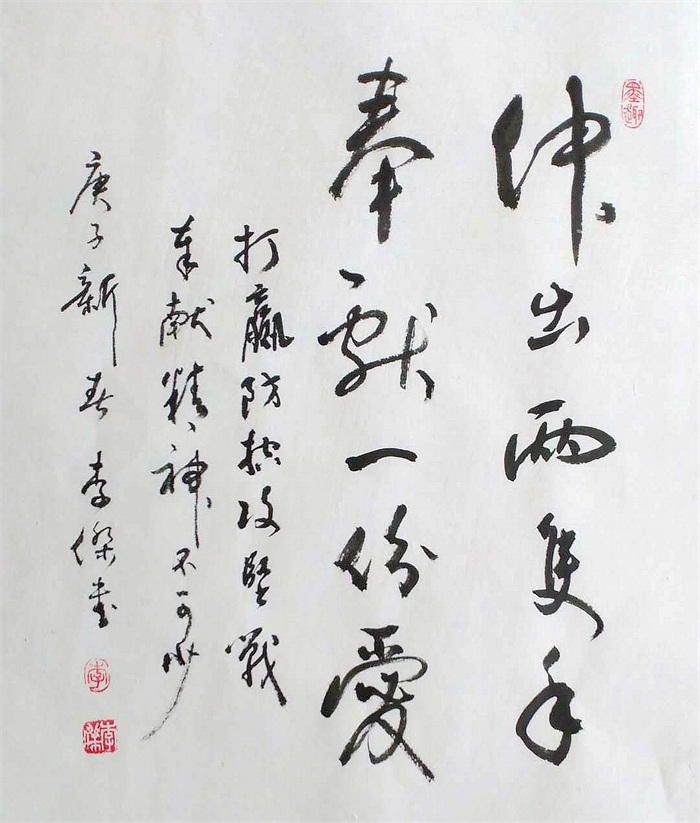 伸出兩隻手
奉獻一份愛
打贏防控攻堅戰
奉献精神不可少
庚子新春 李傑書
墨趣
李
李傑